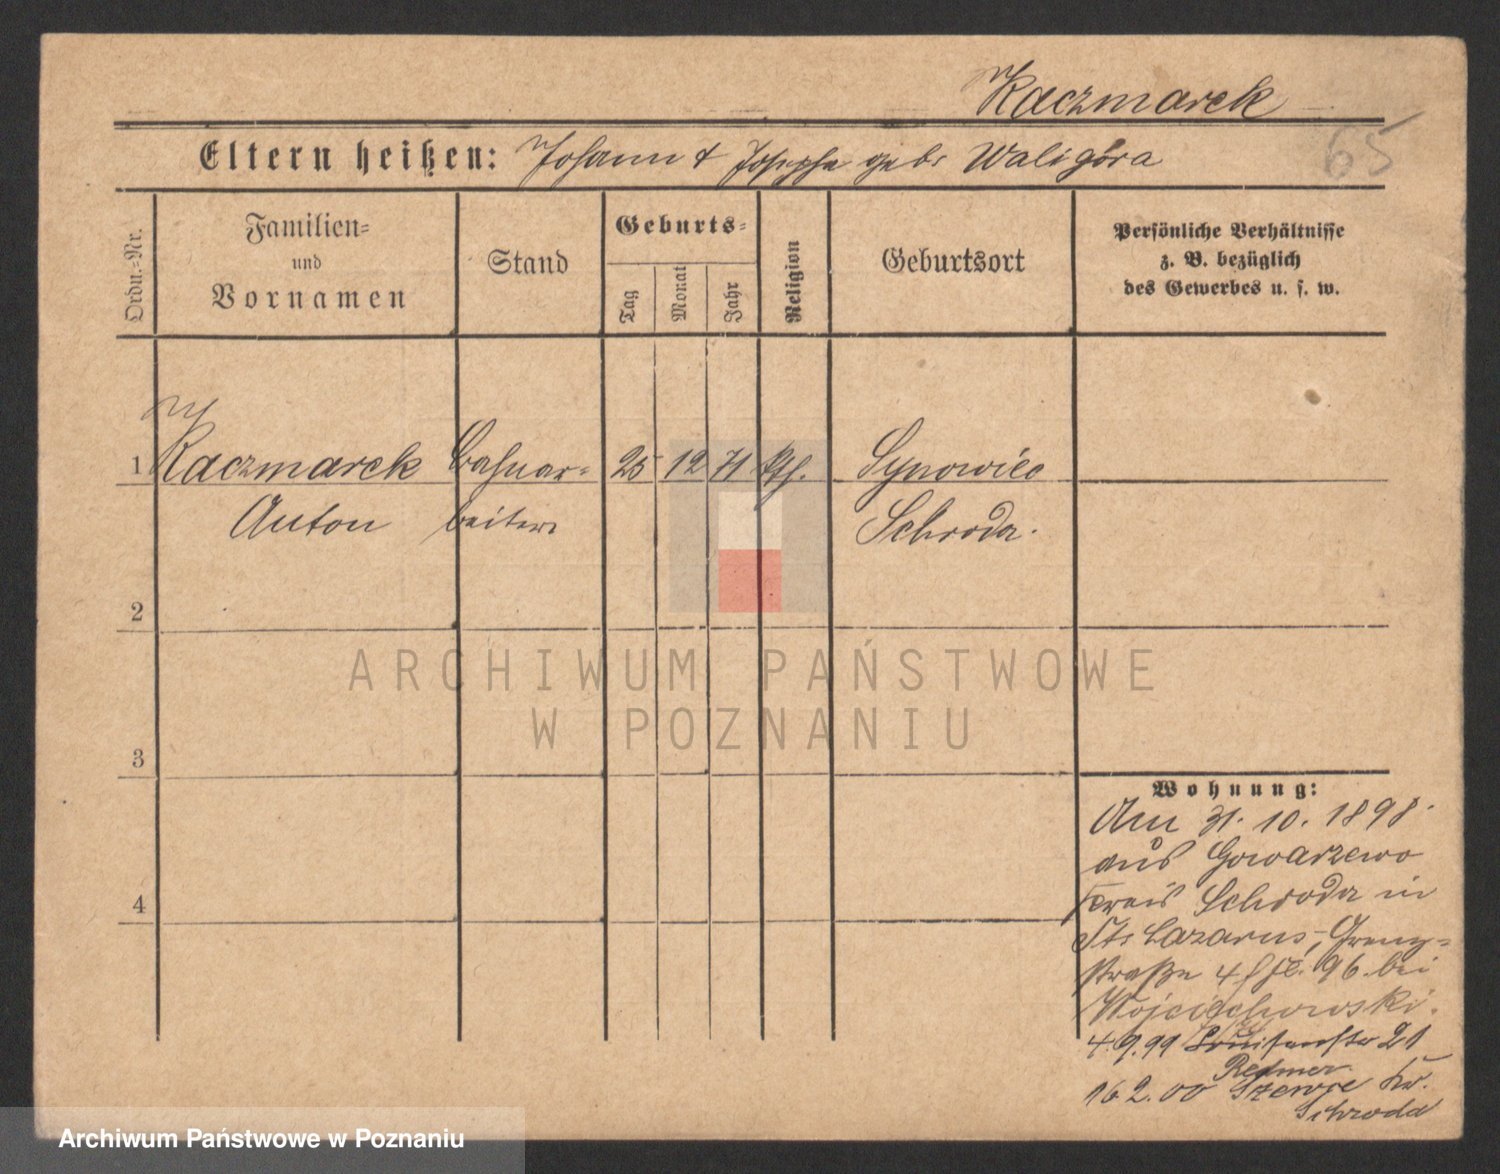 Kaczmarek
65
Eltern heißen: Johann & Josepha geb. Waligóra
Ordn.-Nr.
Familien-
und
Vornamen
Stand
Geburts-
Tag
Monat
Jahr
Religion
Geburtsort
Persönliche Verhältnisse
z. B. bezüglich
des Gewerbes u. s. w.
1 Kaczmarek Bahnar- 25 12 71 kth. Synowiec
Anton beiter Schroda.
2
3
4
Wohnung:
Am 31. 10. 1898.
aus Gowarzewo
Kreis Schroda in
St. Lazarus, Grenz-
straße 4 96. bei
Wojciechowski.
4.9.99 Louisenstr 21
Redmer
16 2.00 Szewce Kr.
Schroda
ARCHIWUM PAŃSTWOWE
W POZNANIU
Archiwum Państwowe w Poznaniu